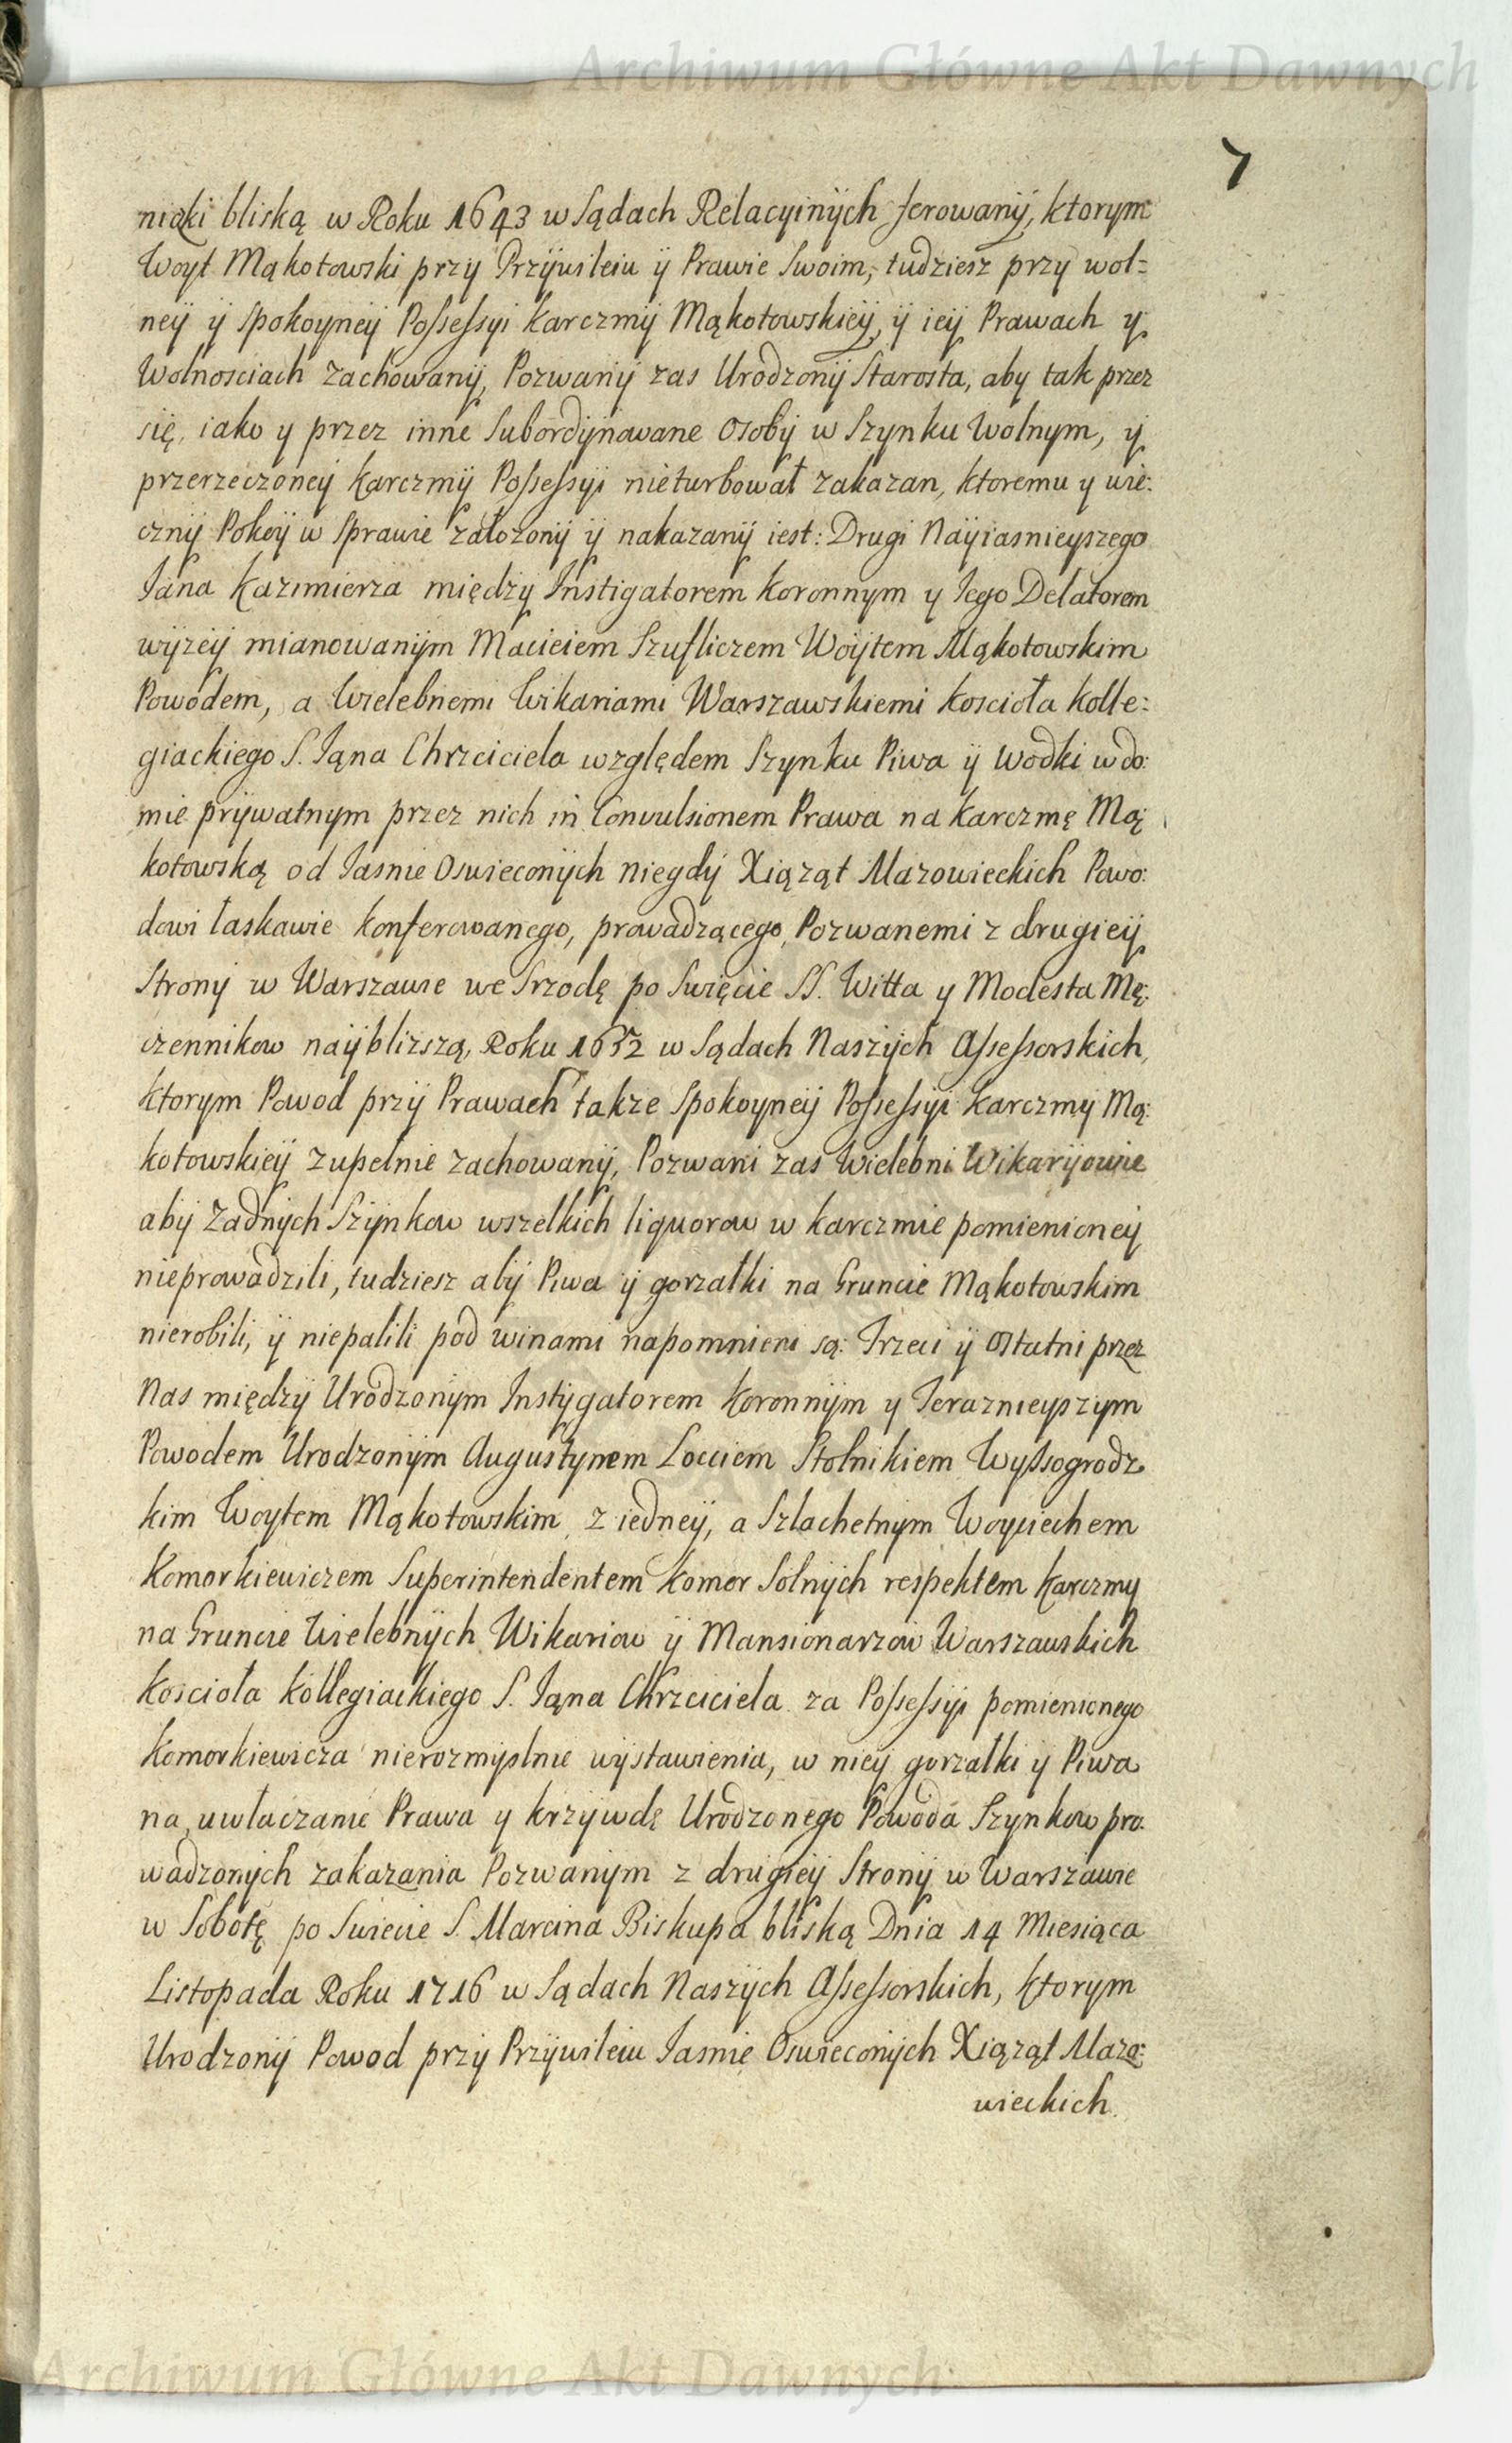 Archiwum Główne Akt Dawnych
7
niczki bliską w Roku 1643 w Sądach Relacyinÿch ferowanÿ, ktorym
Woyt Mąkotowski przy Przÿwileiu ÿ Prawie Swoim, tudziesz przy wol=
neÿ ÿ spokoyneÿ Possessyi Karczmÿ Mąkotowskieÿ, ÿ ieÿ Prawach y
Wolnosciach zachowanÿ, Pozwanÿ zas Urodzonÿ Starosta, aby tak przez
się, iako y przez inne Subordÿnowane Osobÿ w Szynku Wolnym, ÿ
przerzeczoneÿ Karczmÿ Possessÿi nieturbował zakazan, ktoremu y wie:
cznÿ Pokoÿ w Sprawie założonÿ ÿ nakazanÿ iest: Drugi Naÿiasnieyszego
Jana Kazimierza między Instigatorem Koronnym y Jego Delatorem
wÿzeÿ mianowanÿm Macieiem Szufliczem Woÿtem Mąkotowskim
Powodem, a Wielebnemi Wikariami Warszawskiemi Koscioła Kolle:
giackiego S. Jąna Chrzciciela względem Szynku Piwa ÿ Wodki w do:
mie prÿwatnym przez nich in Convulsionem Prawa na Karczmę Mą:
kotowską od Jasnie Oswieconÿch niegdÿ Xiąząt Mazowieckich Powo:
dowi łaskawie konferowanego, prowadzącego, Pozwanemi z drugieÿ
Strony w Warszawie we Srzodę po Swięcie SS. Witta y Modesta Mę:
czennikow naÿblizszą, Roku 1652 w Sądach Naszÿch Assessorskich,
ktorym Powod przÿ Prawach takze Spokoyneÿ Possessyi Karczmy Mą:
kotowskieÿ zupełnie zachowanÿ, Pozwani zas Wielebni Wikarÿowie
abÿ Zadnÿch Szÿnkow wszelkich liquorow w karczmie pomienioneÿ
nieprowadzili, tudziesz abÿ Piwa ÿ gorzałki na Gruncie Mąkotowskim
nierobili, ÿ niepalili pod winami napomnieni są: Trzeci ÿ Ostatni przez
Nas międzÿ Urodzonÿm Instÿgatorem Koronnÿm y Teraznieyszym
Powodem Urodzonÿm Augustynem Locciem Stolnikiem Wyssogrodz
kim Woytem Mąkotowskim z iedneÿ, a Szlachetnym Woyciechem
Komorkiewiczem Superintendentem Komor Solnÿch respektem Karczmy
na Gruncie Wielebnÿch Wikariow ÿ Mansionarzow Warszawskich
Koscioła Kollegiackiego S. Jąna Chrzciciela za Possessÿi pomienionego
Komorkiewicza nierozmÿslnie wÿstawienia, w nieÿ gorzałki y Piwa
na uwłaczanie Prawa y krzÿwdę Urodzonego Powoda Szynkow pro:
wadzonÿch zakazania Pozwanÿm z drugieÿ Stronÿ w Warszawie
w Sobotę po Swiecie S. Marcina Biskupa bliską Dnia 14 Miesiąca
Listopada Roku 1716 w Sądach Naszÿch Assessorskich, ktorym
Urodzonÿ Powod przÿ Przÿwileiu Jasnie Oswieconÿch Xiąząt Mazo:
wieckich.
Archiwum Główne Akt Dawnych